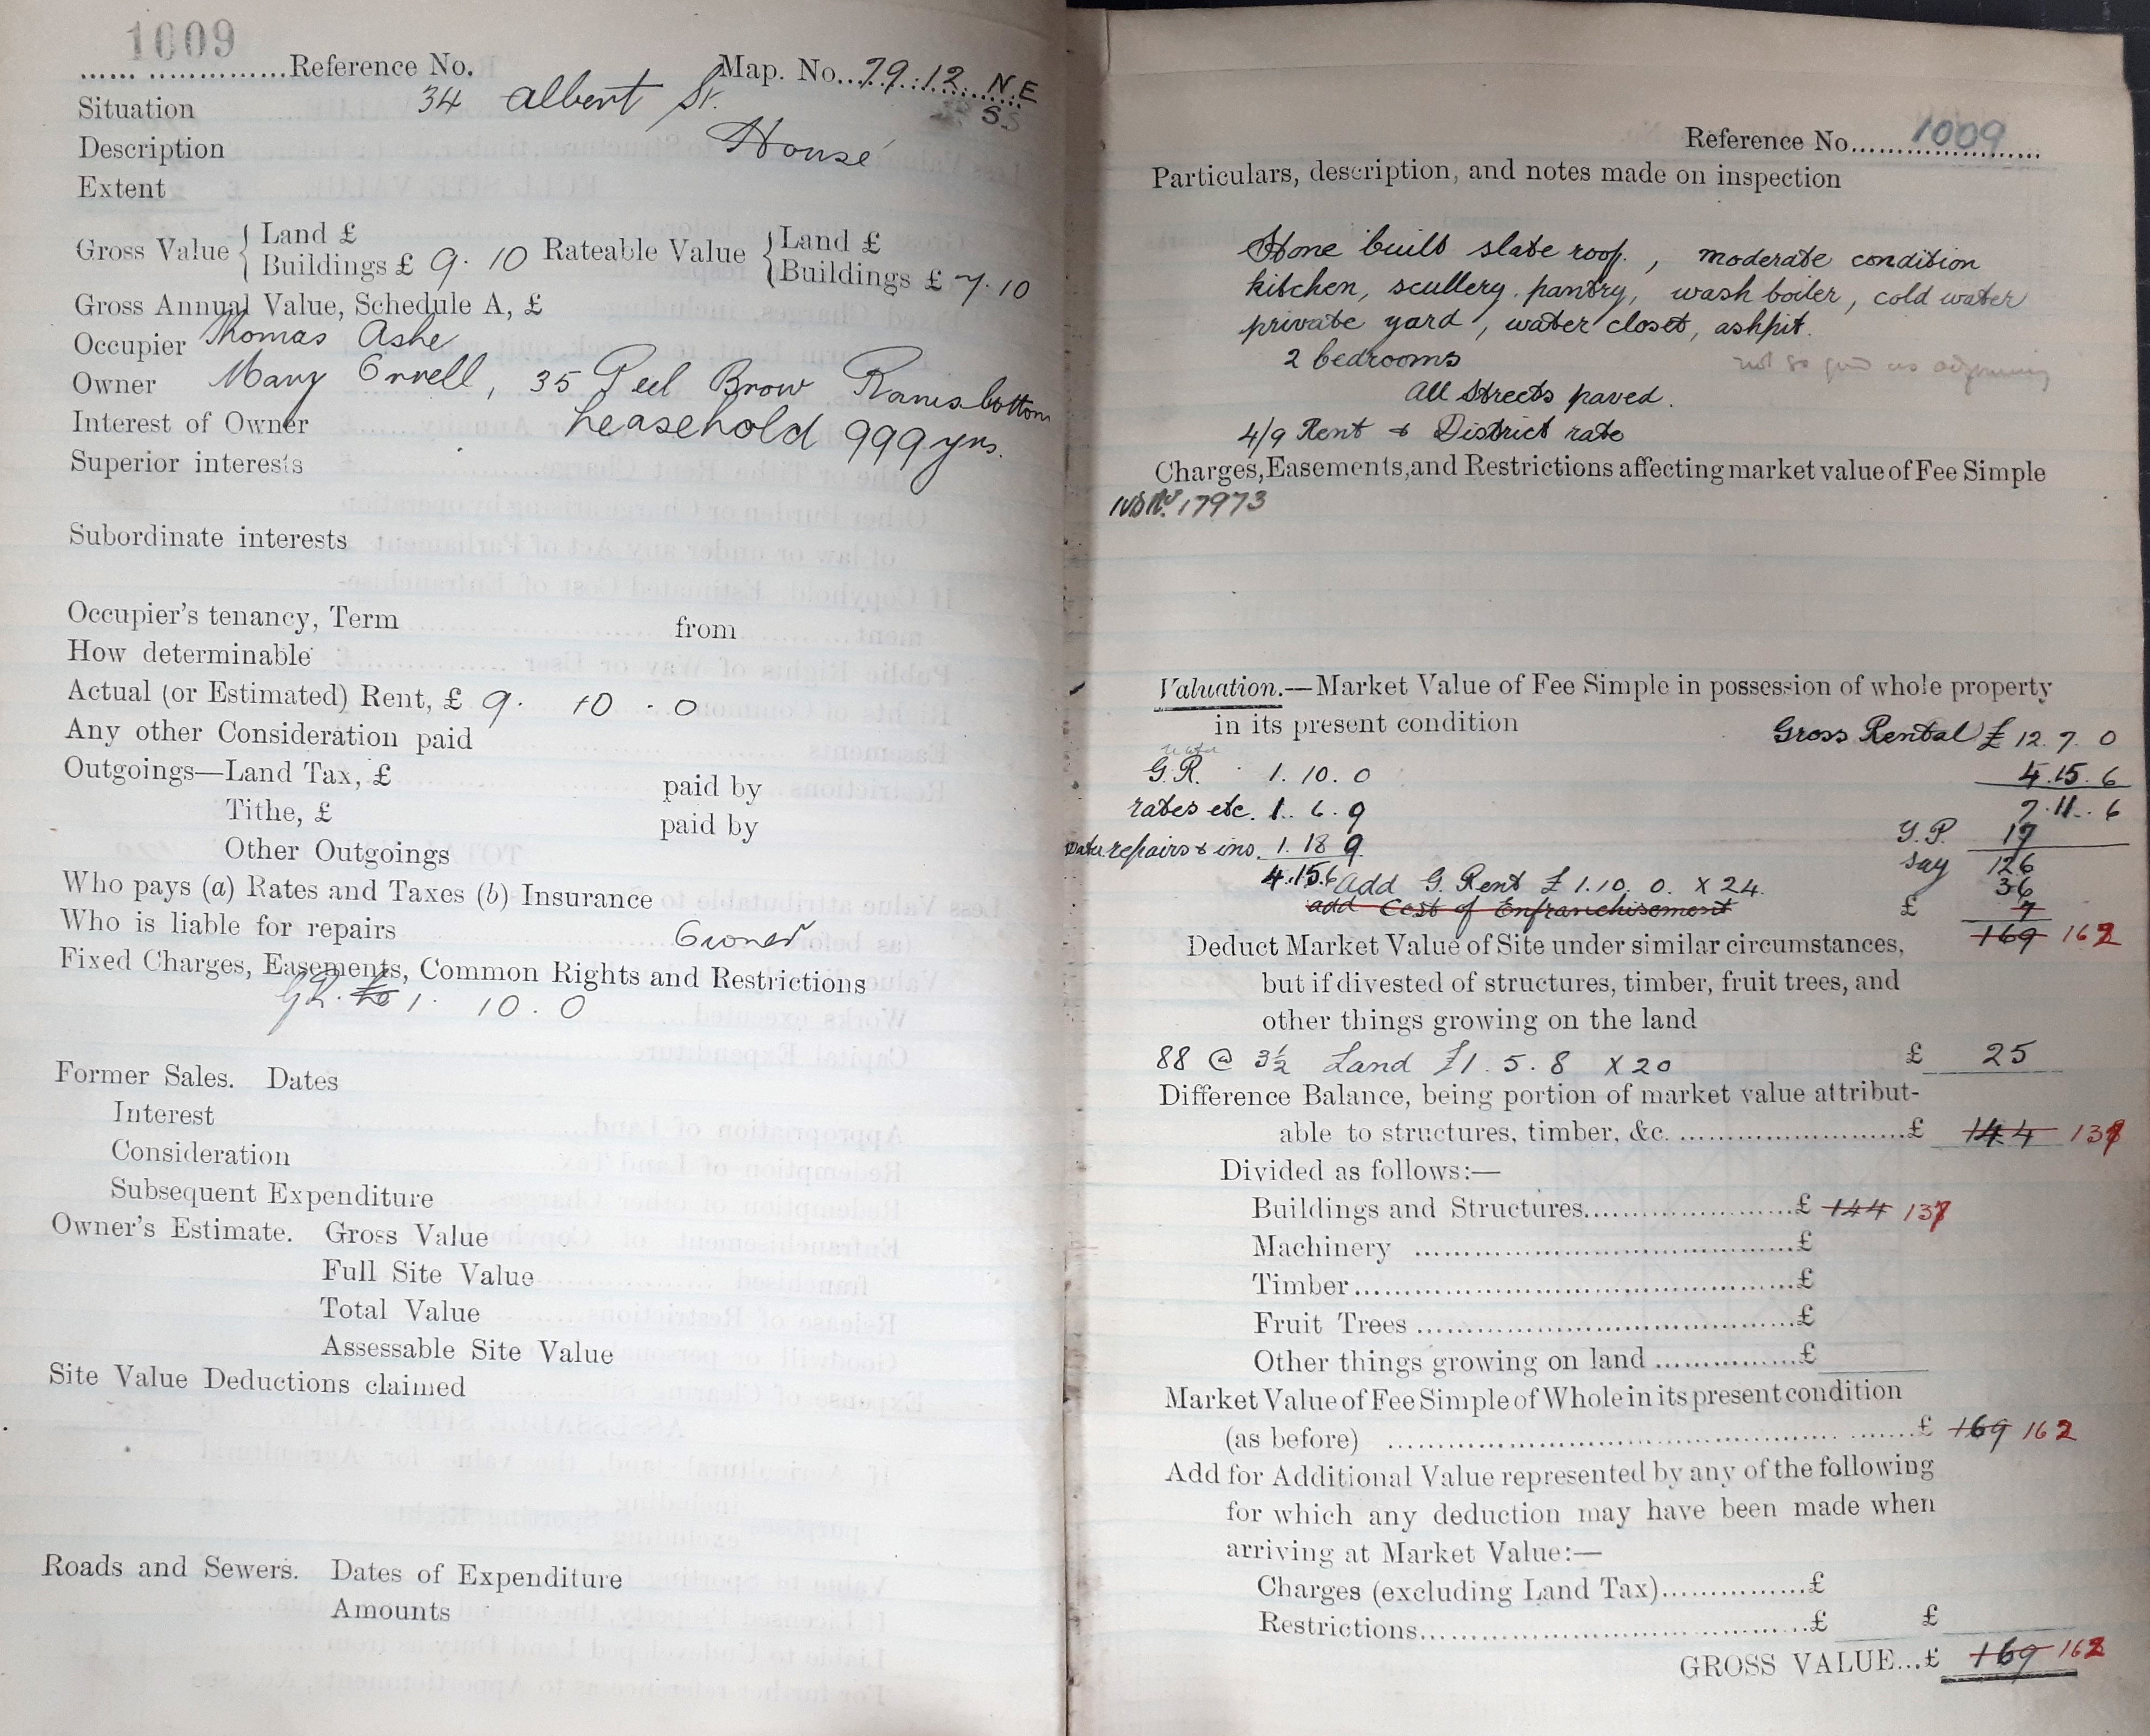 1009
...... ..............Reference No. Map. No...79.:.12. N.E
S.S
Situation 34 Albert St.
Description House
Extent
Gross Value { Land £ Rateable Value { Land £
Buildings £ 9. 10 Buildings £ 7. 10
Gross Annual Value, Schedule A, £
Occupier Thomas Ashe
Owner Mary Orrell, 35 Peel Brow Ramsbottom
Interest of Owner Leasehold 999 yrs.
Superior interests
Subordinate interests
Occupier's tenancy, Term from
How determinable
Actual (or Estimated) Rent, £ 9. 10 . 0
Any other Consideration paid
Outgoings—Land Tax, £ paid by
Tithe, £ paid by
Other Outgoings
Who pays (a) Rates and Taxes (b) Insurance
Who is liable for repairs Owner
Fixed Charges, Easements, Common Rights and Restrictions
G.R. 1. 10 . 0
Former Sales. Dates
Interest
Consideration
Subsequent Expenditure
Owner's Estimate. Gross Value
Full Site Value
Total Value
Assessable Site Value
Site Value Deductions claimed
Roads and Sewers. Dates of Expenditure
Amounts
Reference No....1009....
Particulars, description, and notes made on inspection
Stone built slate roof, moderate condition
kitchen, scullery, pantry, wash boiler, cold water
private yard, water closet, ashpit.
2 bedrooms not so good as adjoining
All Streets paved.
4/9 Rent & District rate
Charges, Easements, and Restrictions affecting market value of Fee Simple
IVS No. 17973
Valuation.—Market Value of Fee Simple in possession of whole property
in its present condition Gross Rental £ 12. 7. 0
G.R. 1. 10. 0 4. 15. 6
rates etc. 1. 6. 9 7. 11. 6
repairs & ins. 1. 18 9 Y.P. 17
say 126
4.15.6 Add G. Rent £1.10. 0. X 24. 36
add Cost of Enfranchisement £ 7
169 162
Deduct Market Value of Site under similar circumstances,
but if divested of structures, timber, fruit trees, and
other things growing on the land
88 @ 3½ Land £1. 5. 8 X 20 £ 25
Difference Balance, being portion of market value attribut-
able to structures, timber, &c. ..........................£ 144 137
Divided as follows:—
Buildings and Structures......................£ 144 137
Machinery ........................................£
Timber..............................................£
Fruit Trees ........................................£
Other things growing on land ...............£
Market Value of Fee Simple of Whole in its present condition
(as before) ..................................................£ 169 162
Add for Additional Value represented by any of the following
for which any deduction may have been made when
arriving at Market Value:—
Charges (excluding Land Tax)...............£
Restrictions........................................£ £
GROSS VALUE...£ 169 162